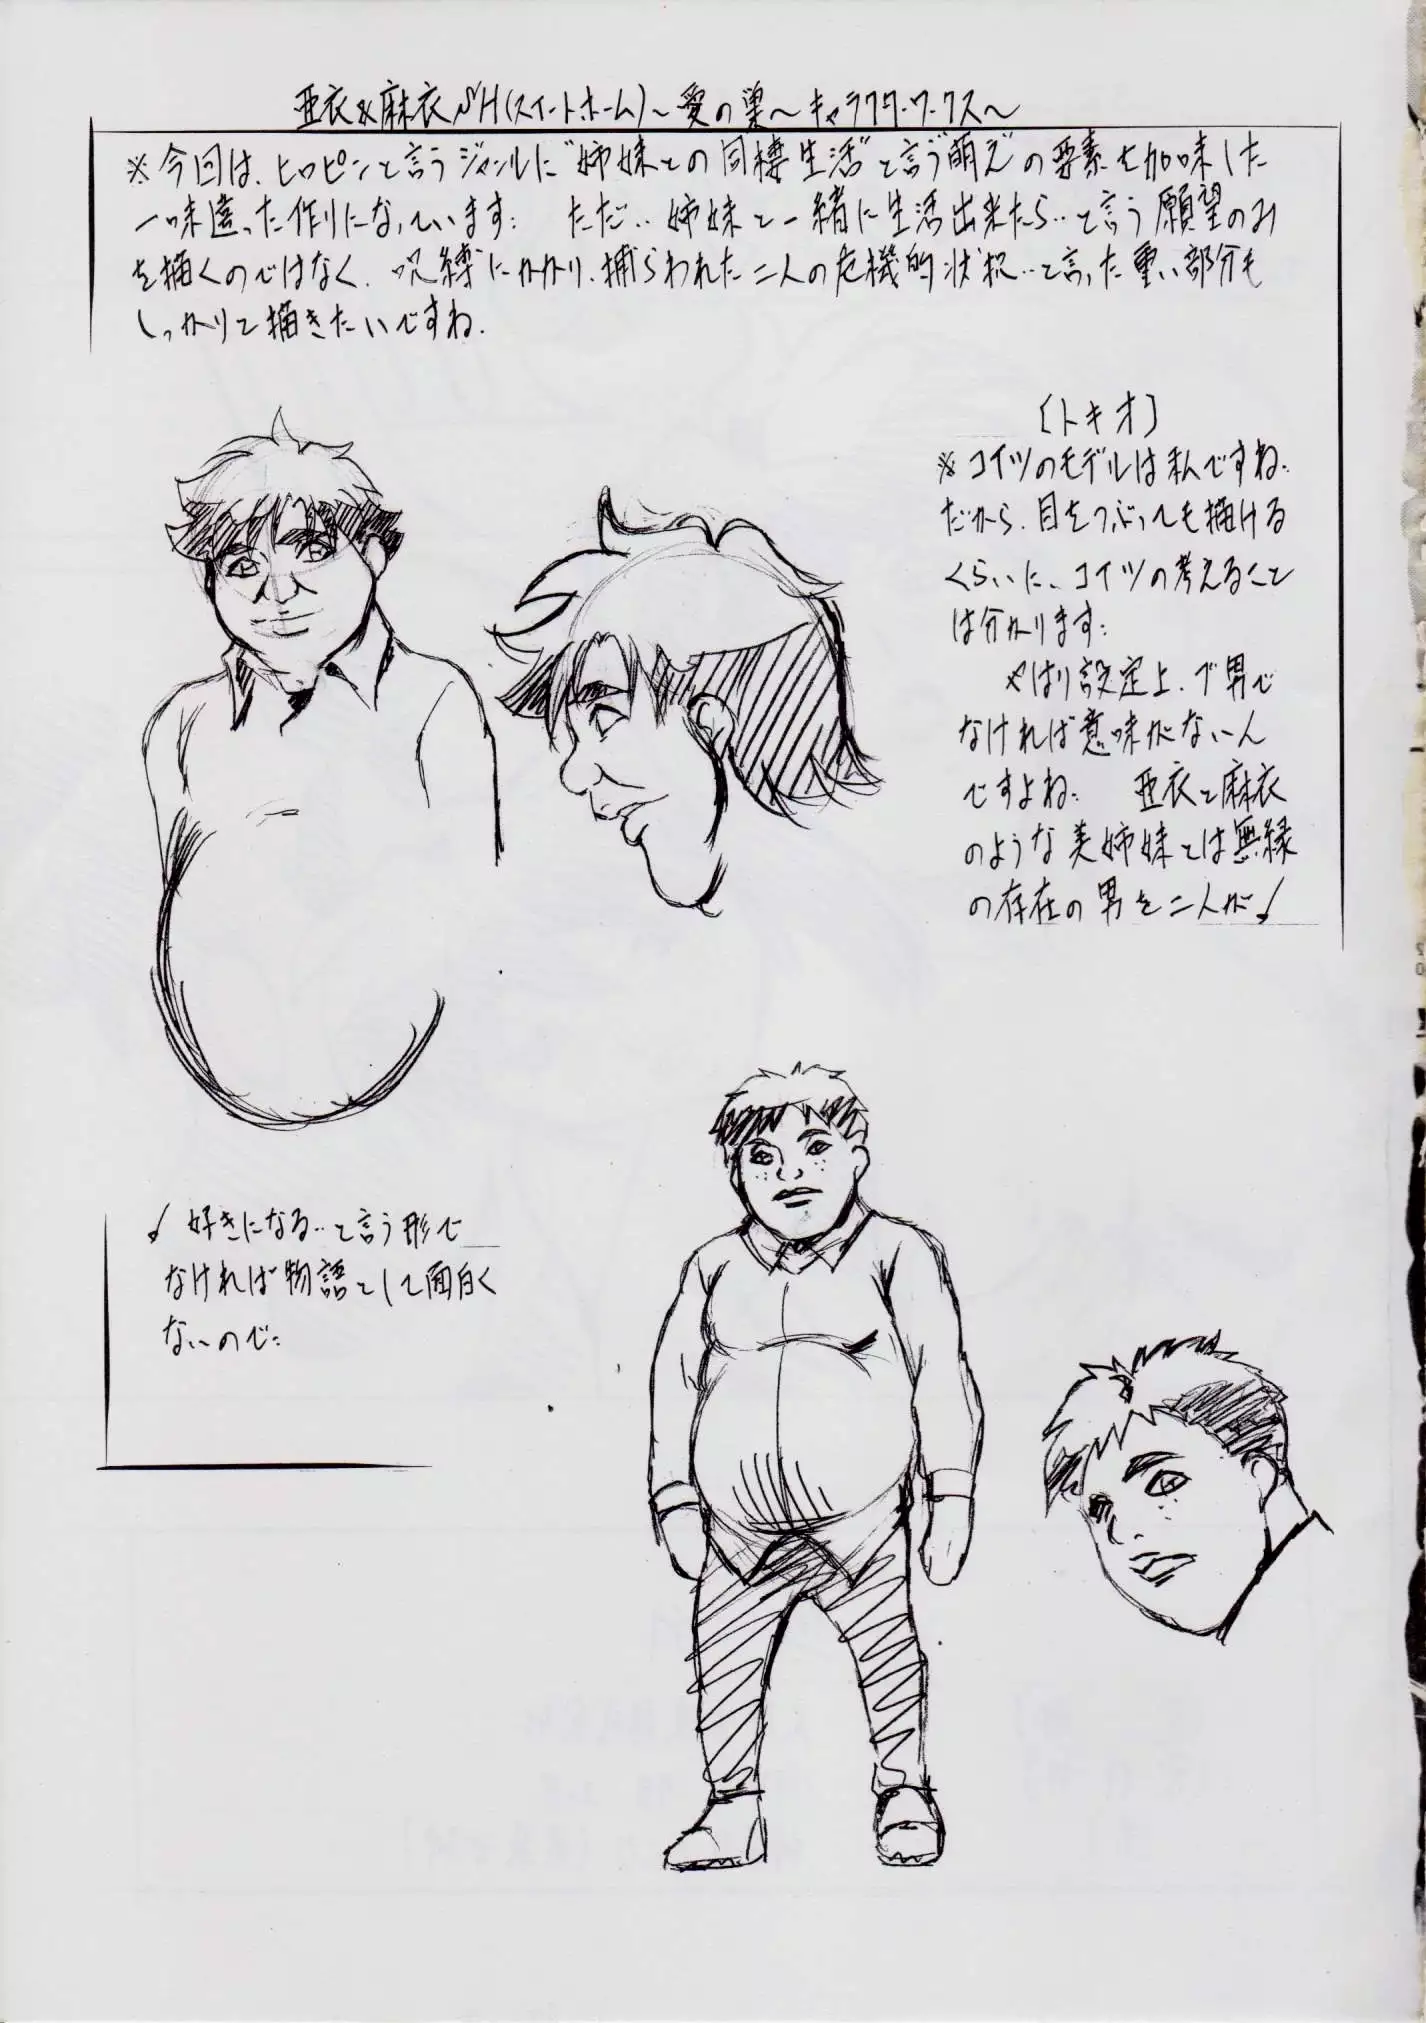 亜衣&麻衣SH(スイートホーム)～愛の巣～キャラクターワークス～
※今回は、ヒロピンと言うジャンルに"姉妹との同棲生活"と言う"萌え"の要素を加味した
一味違った作りになっています: ただ‥姉妹と一緒に生活出来たら‥と言う願望のみ
を描くのではなく、呪縛にかかり、捕らわれた二人の危機的状況‥と言った重い部分も
しっかりと描きたいですね.
〔トキオ〕
※コイツのモデルは私ですね‥
だから、目をつぶっても描ける
くらいに、コイツの考えること
は分かります:
やはり設定上、ブ男で
なければ意味がないん
ですよね‥ 亜衣と麻衣
のような美姉妹とは無縁
の存在の男を二人が
好きになる‥と言う形で
なければ物語として面白く
ないので: